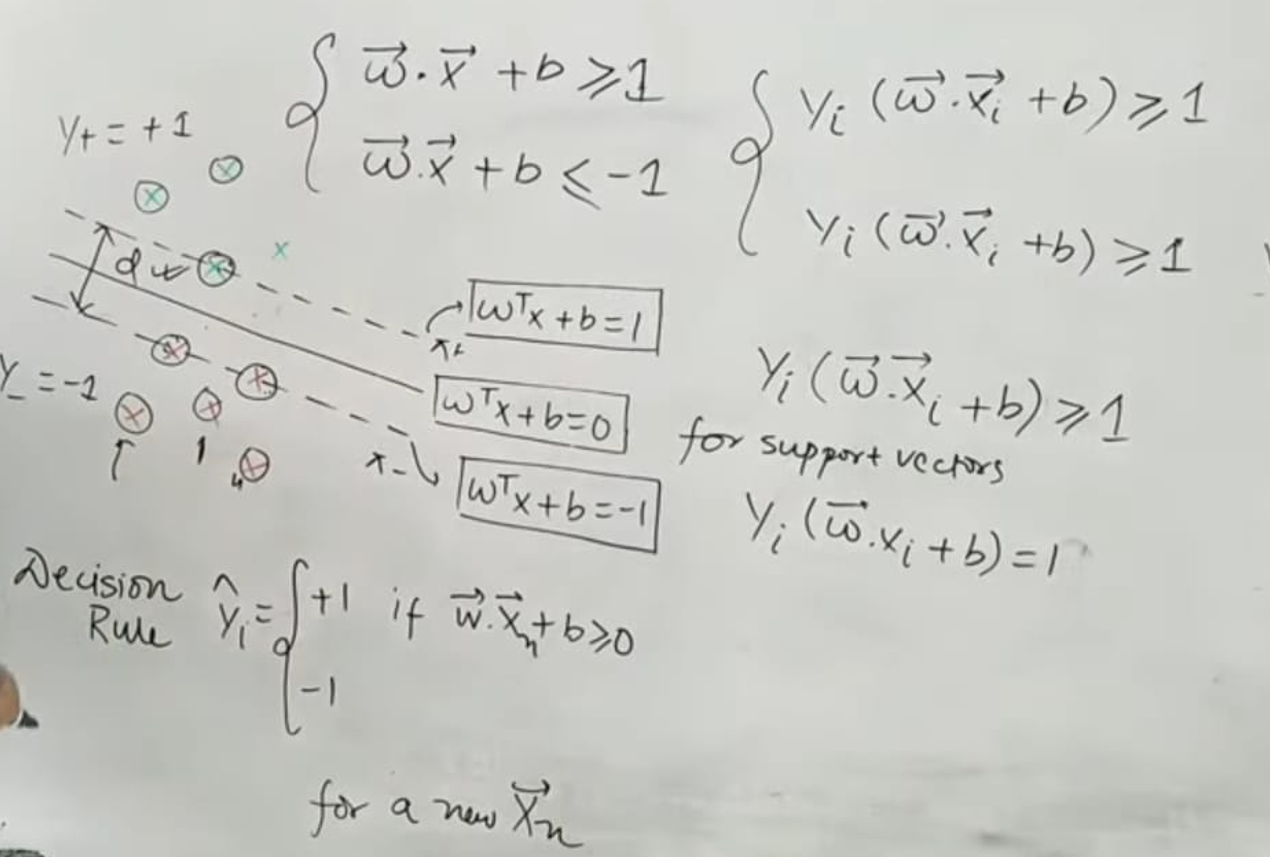 { w⃗·x⃗ + b ⩾ 1
w⃗·x⃗ + b ⩽ -1
{ yᵢ (w⃗·x⃗ᵢ + b) ⩾ 1
yᵢ (w⃗·x⃗ᵢ + b) ⩾ 1
y₊ = +1
d
wᵀx + b = 1
x₊
wᵀx + b = 0
y₋ = -1
x₋
wᵀx + b = -1
yᵢ (w⃗·x⃗ᵢ + b) ⩾ 1
for support vectors
yᵢ (w⃗·xᵢ + b) = 1
Decision Rule ŷᵢ = { +1 if w⃗·x⃗ₙ + b ⩾ 0
-1
for a new x⃗ₙ